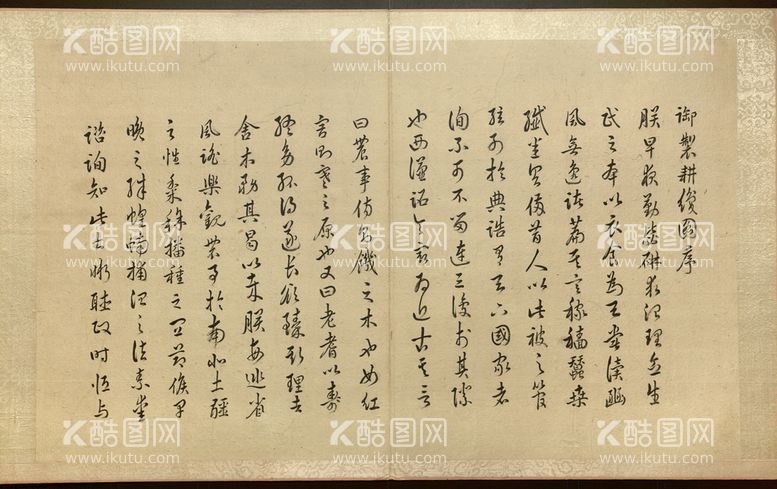 御製耕織圖序
朕早夜勤毖研求治理念生
民之本以衣食為天嘗讀豳
風無逸諸篇其言稼穡蠶桑
纖悉具備昔人以此被之管
絃列於典誥有天下國家者
洵不可不留連三復於其際
也西漢詔令最為近古其言
曰農事傷則饑之本也女紅
害則寒之原也又曰老耆以壽
終幼孤得遂長欲臻斯理者
舍本務其曷以哉朕每巡省
風謠樂觀農事於南北土疆
之性黍稌播種之宜節候早
晚之殊蝗蝻捕治之法素愛
諮詢知此甚晰聽政時恒與
酷图网
www.ikutu.com
酷图网
www.ikutu.com
酷图网
www.ikutu.com
酷图网
www.ikutu.com
酷图网
www.ikutu.com
酷图网
www.ikutu.com
酷图网
www.ikutu.com
酷图网
www.ikutu.com
酷图网
www.ikutu.com